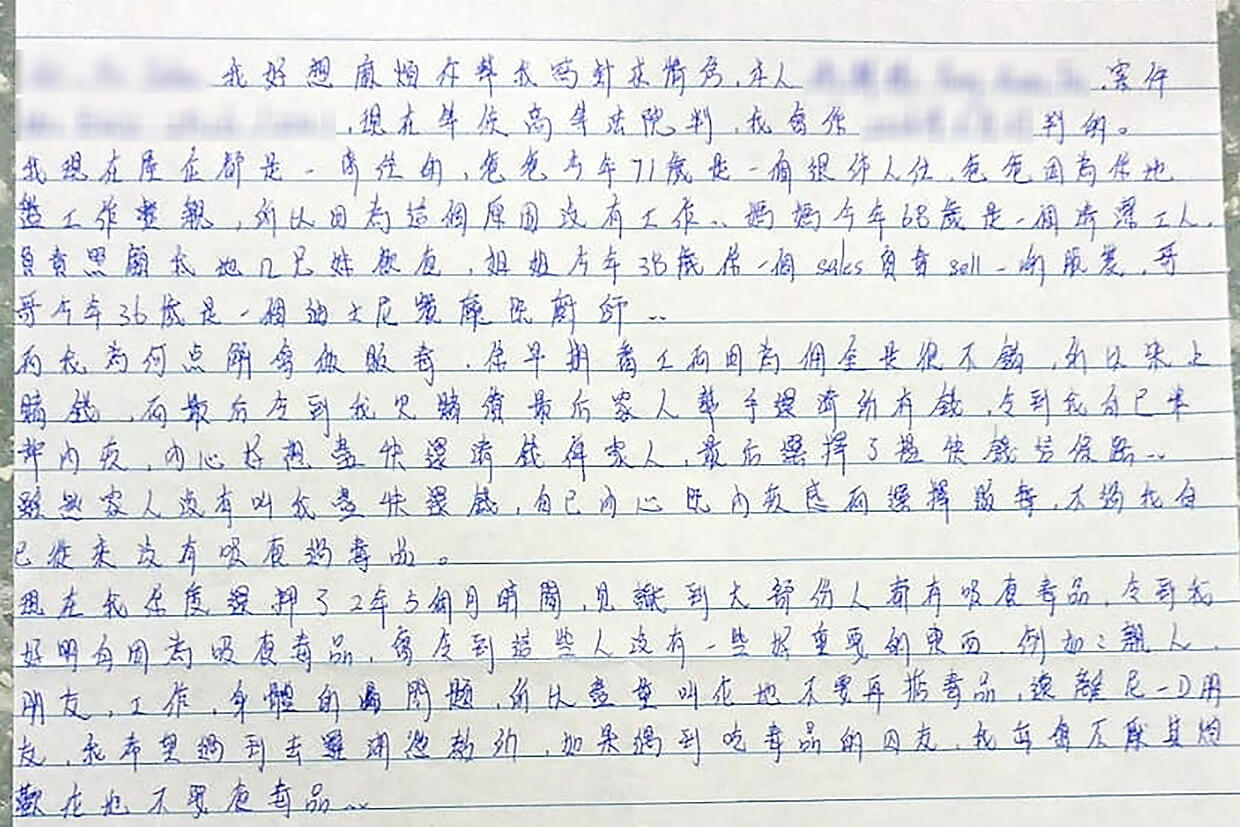 我好想麻煩你幫我寫封求情信,本人 ,案件
,現在等候高等法院判,我會係 判的。
我現在屋企都是一齊住的,爸爸今年71歲是一個退休人仕,爸爸因為係地
盤工作整親,所以因為這個原因沒有工作..媽媽今年68歲是一個清潔工人,
負責照顧我地 兄妹飲食,姐姐今年38歲係一個sales負責sell一啲服裝,哥
哥今年36歲是一個迪士尼餐廳既廚師..
而我為何点解會做販毒,係早期看工而因為佣金是很不錯,所以染上
賭錢,而最后令到我欠賭債最后家人幫手還清所有錢,令到我自己
內疚,內心好想盡快還清錢俾家人,最后選擇了搵快錢這條路..
雖然家人沒有叫我盡快還錢,自己內心既內疚感而選擇販毒,不過我自
己從來沒有吸食過毒品。
現在我係度還押了2年5個月時間,見識到大部份人都有吸食毒品,令到我
好明白因為吸食毒品,會令到這些人沒有一些好重要的東西,例如:親人,
朋友,工作,身體的 問題,所以盡量叫佢地不要再掂毒品,遠離尼一D朋
友,我希望過到去羅湖懲教所,如果遇到吃毒品的囚友,我每會不厭其煩
歡佢地不要食毒品..